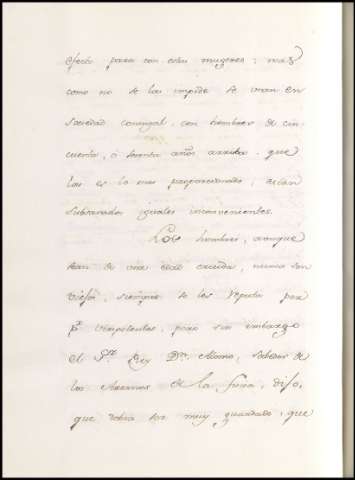 efecto para con estas mugeres; mas
como no se las impide se unan en
sociedad conyugal, con hombres de cin-
cuenta, ó sesenta años arriba, que
las es lo mas proporcionado, estan
subsanados iguales inconvenientes.
Los hombres, aunque
sean de una edad crecida, nunca son
viejos, siempre se les reputa por
p.ͣ , pero sin embargo
el S.ͬ Rey D.ⁿ Alonso, Sabidor de
los de la , dijo,
que debia ser muy guardado, que